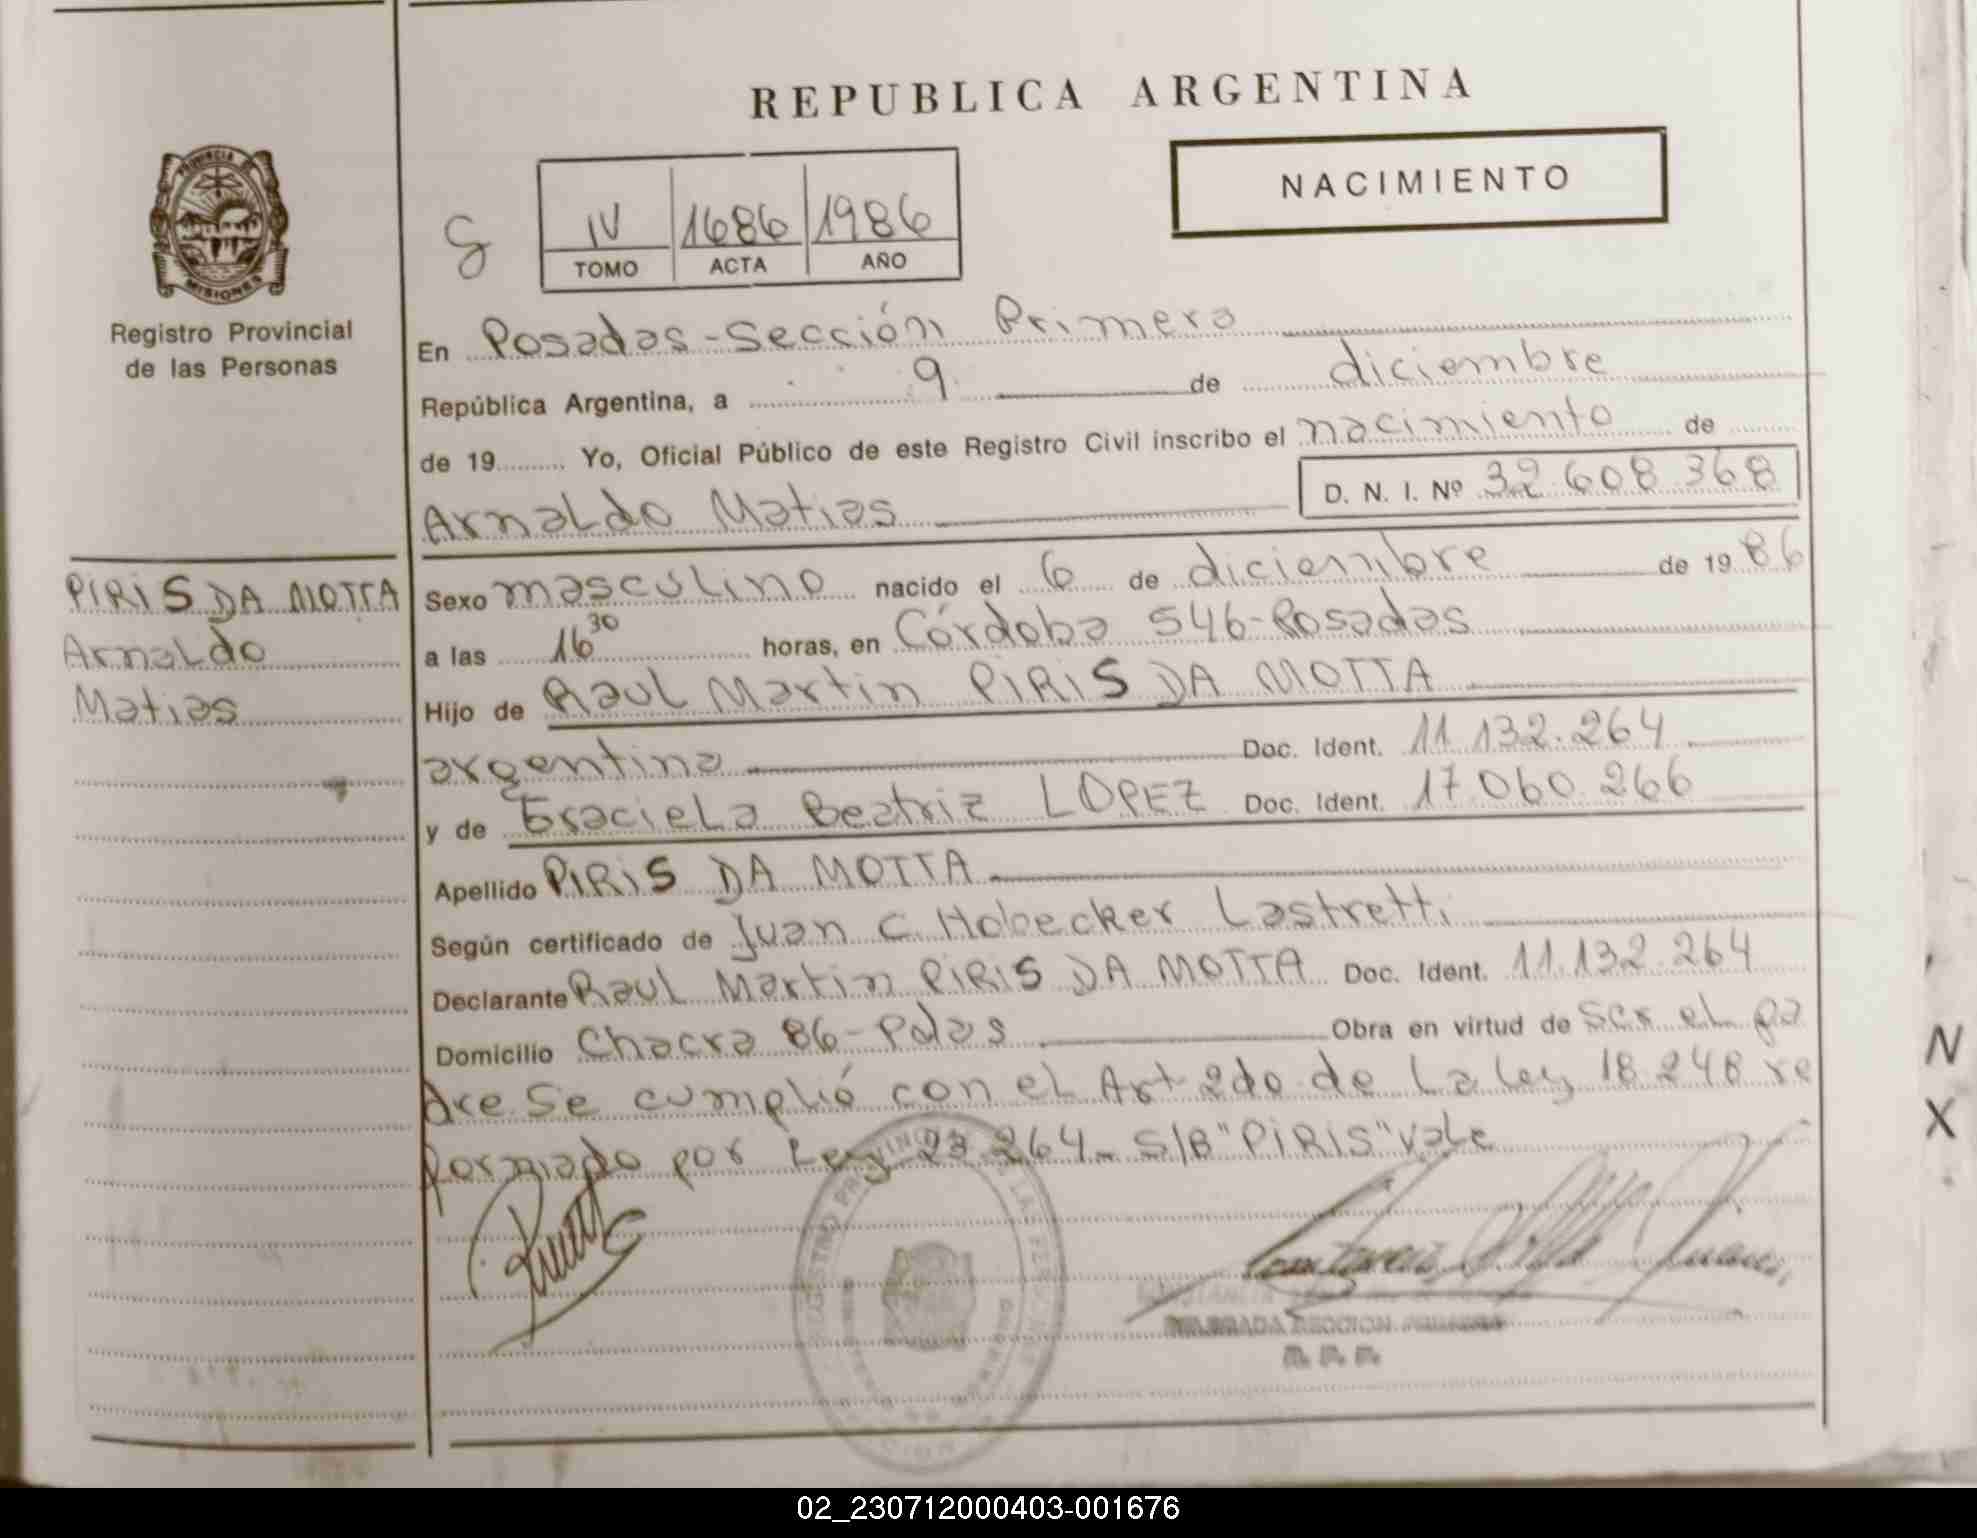 REPUBLICA ARGENTINA
NACIMIENTO
PROVINCIA DE
MISIONES
Registro Provincial
de las Personas
IV 1686 1986
TOMO ACTA AÑO
En Posadas-Sección Primera
República Argentina, a 9 de diciembre
de 19 Yo, Oficial Público de este Registro Civil inscribo el nacimiento de
Arnaldo Matias D. N. I. Nº 32.608.368
PIRIS DA MOTTA
Arnaldo
Matias
Sexo masculino nacido el 6 de diciembre de 1986
a las 16 30 horas, en Córdoba 546-Posadas
Hijo de Raul Martin PIRIS DA MOTTA
argentina Doc. Ident. 11.132.264
y de Graciela Beatriz LOPEZ Doc. Ident. 17.060.266
Apellido PIRIS DA MOTTA
Según certificado de Juan C. Hobecker Lastretti
Declarante Raul Martin PIRIS DA MOTTA Doc. Ident. 11.132.264
Domicilio Chacra 86-Pdas Obra en virtud de ser el pa
dre Se cumplió con el Art 2do de la ley 18.248 re
formado por Ley 23.264- S/B "PIRIS" vale
N
X
02_230712000403-001676